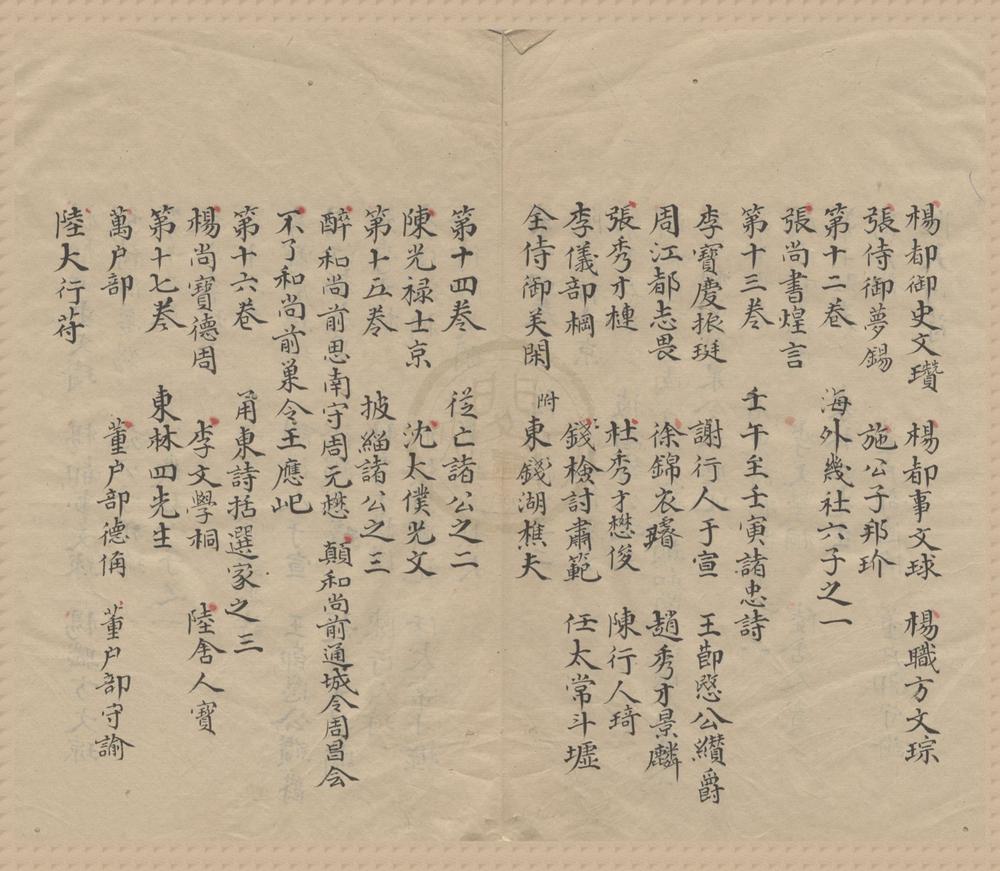 楊都御史文瓚 楊都事文球 楊職方文琮
張侍御夢錫 施公子邦玠
第十二卷 海外幾社六子之一
張尚書煌言
第十三卷 壬午至壬寅諸忠詩
李寶慶振珽 謝行人于宣 王節愍公纘爵
周江都志畏 徐錦衣𤩽 趙秀才景麟
張秀才槤 杜秀才懋俊 陳行人琦
李儀部棡 錢檢討肅範 任太常斗墟
全侍御美閑 附東錢湖樵夫
第十四卷 從亡諸公之二
陳光祿士京 沈太僕光文
第十五卷 披緇諸公之三
醉和尚前思南守周元懋 顛和尚前通城令周昌会
不了和尚前巢令王應屺
第十六卷 甬東詩括選家之三
楊尚寶德周 李文學桐 陸舍人寶
第十七卷 東林四先生
萬户部 董户部德偁 董户部守諭
陸大行苻